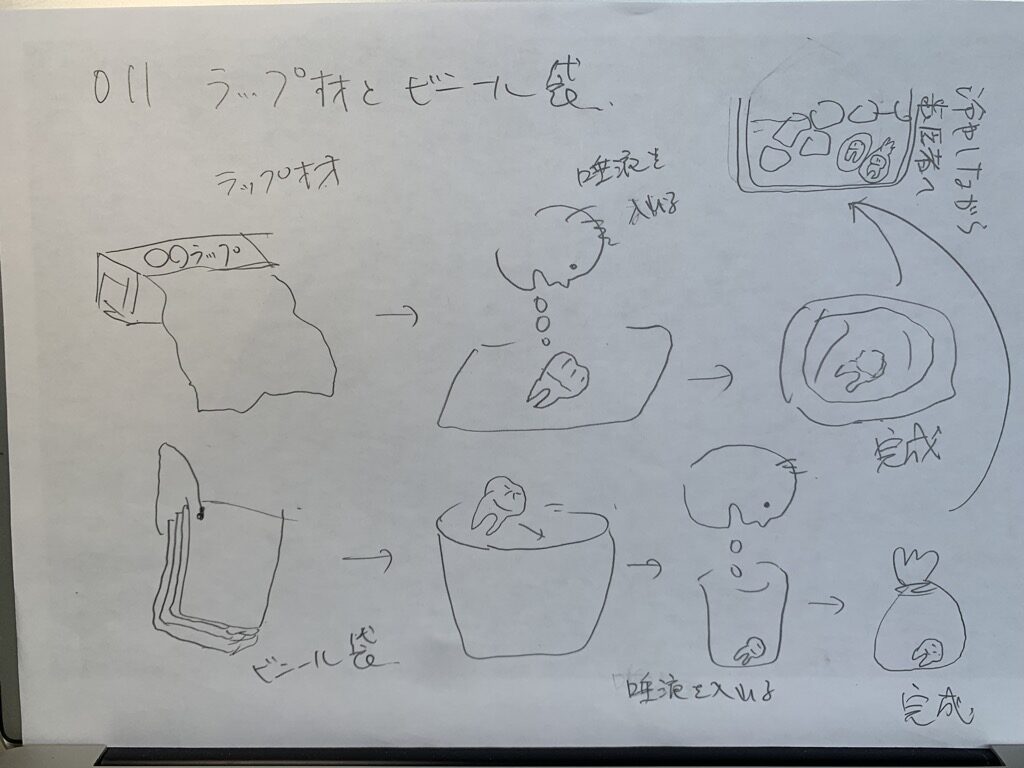 011 ラップ材とビニール袋
ラップ材
唾液を
入れる
冷やしながら
お医者へ
〇〇ラップ
完成
ビニール袋
唾液を入れる
完成